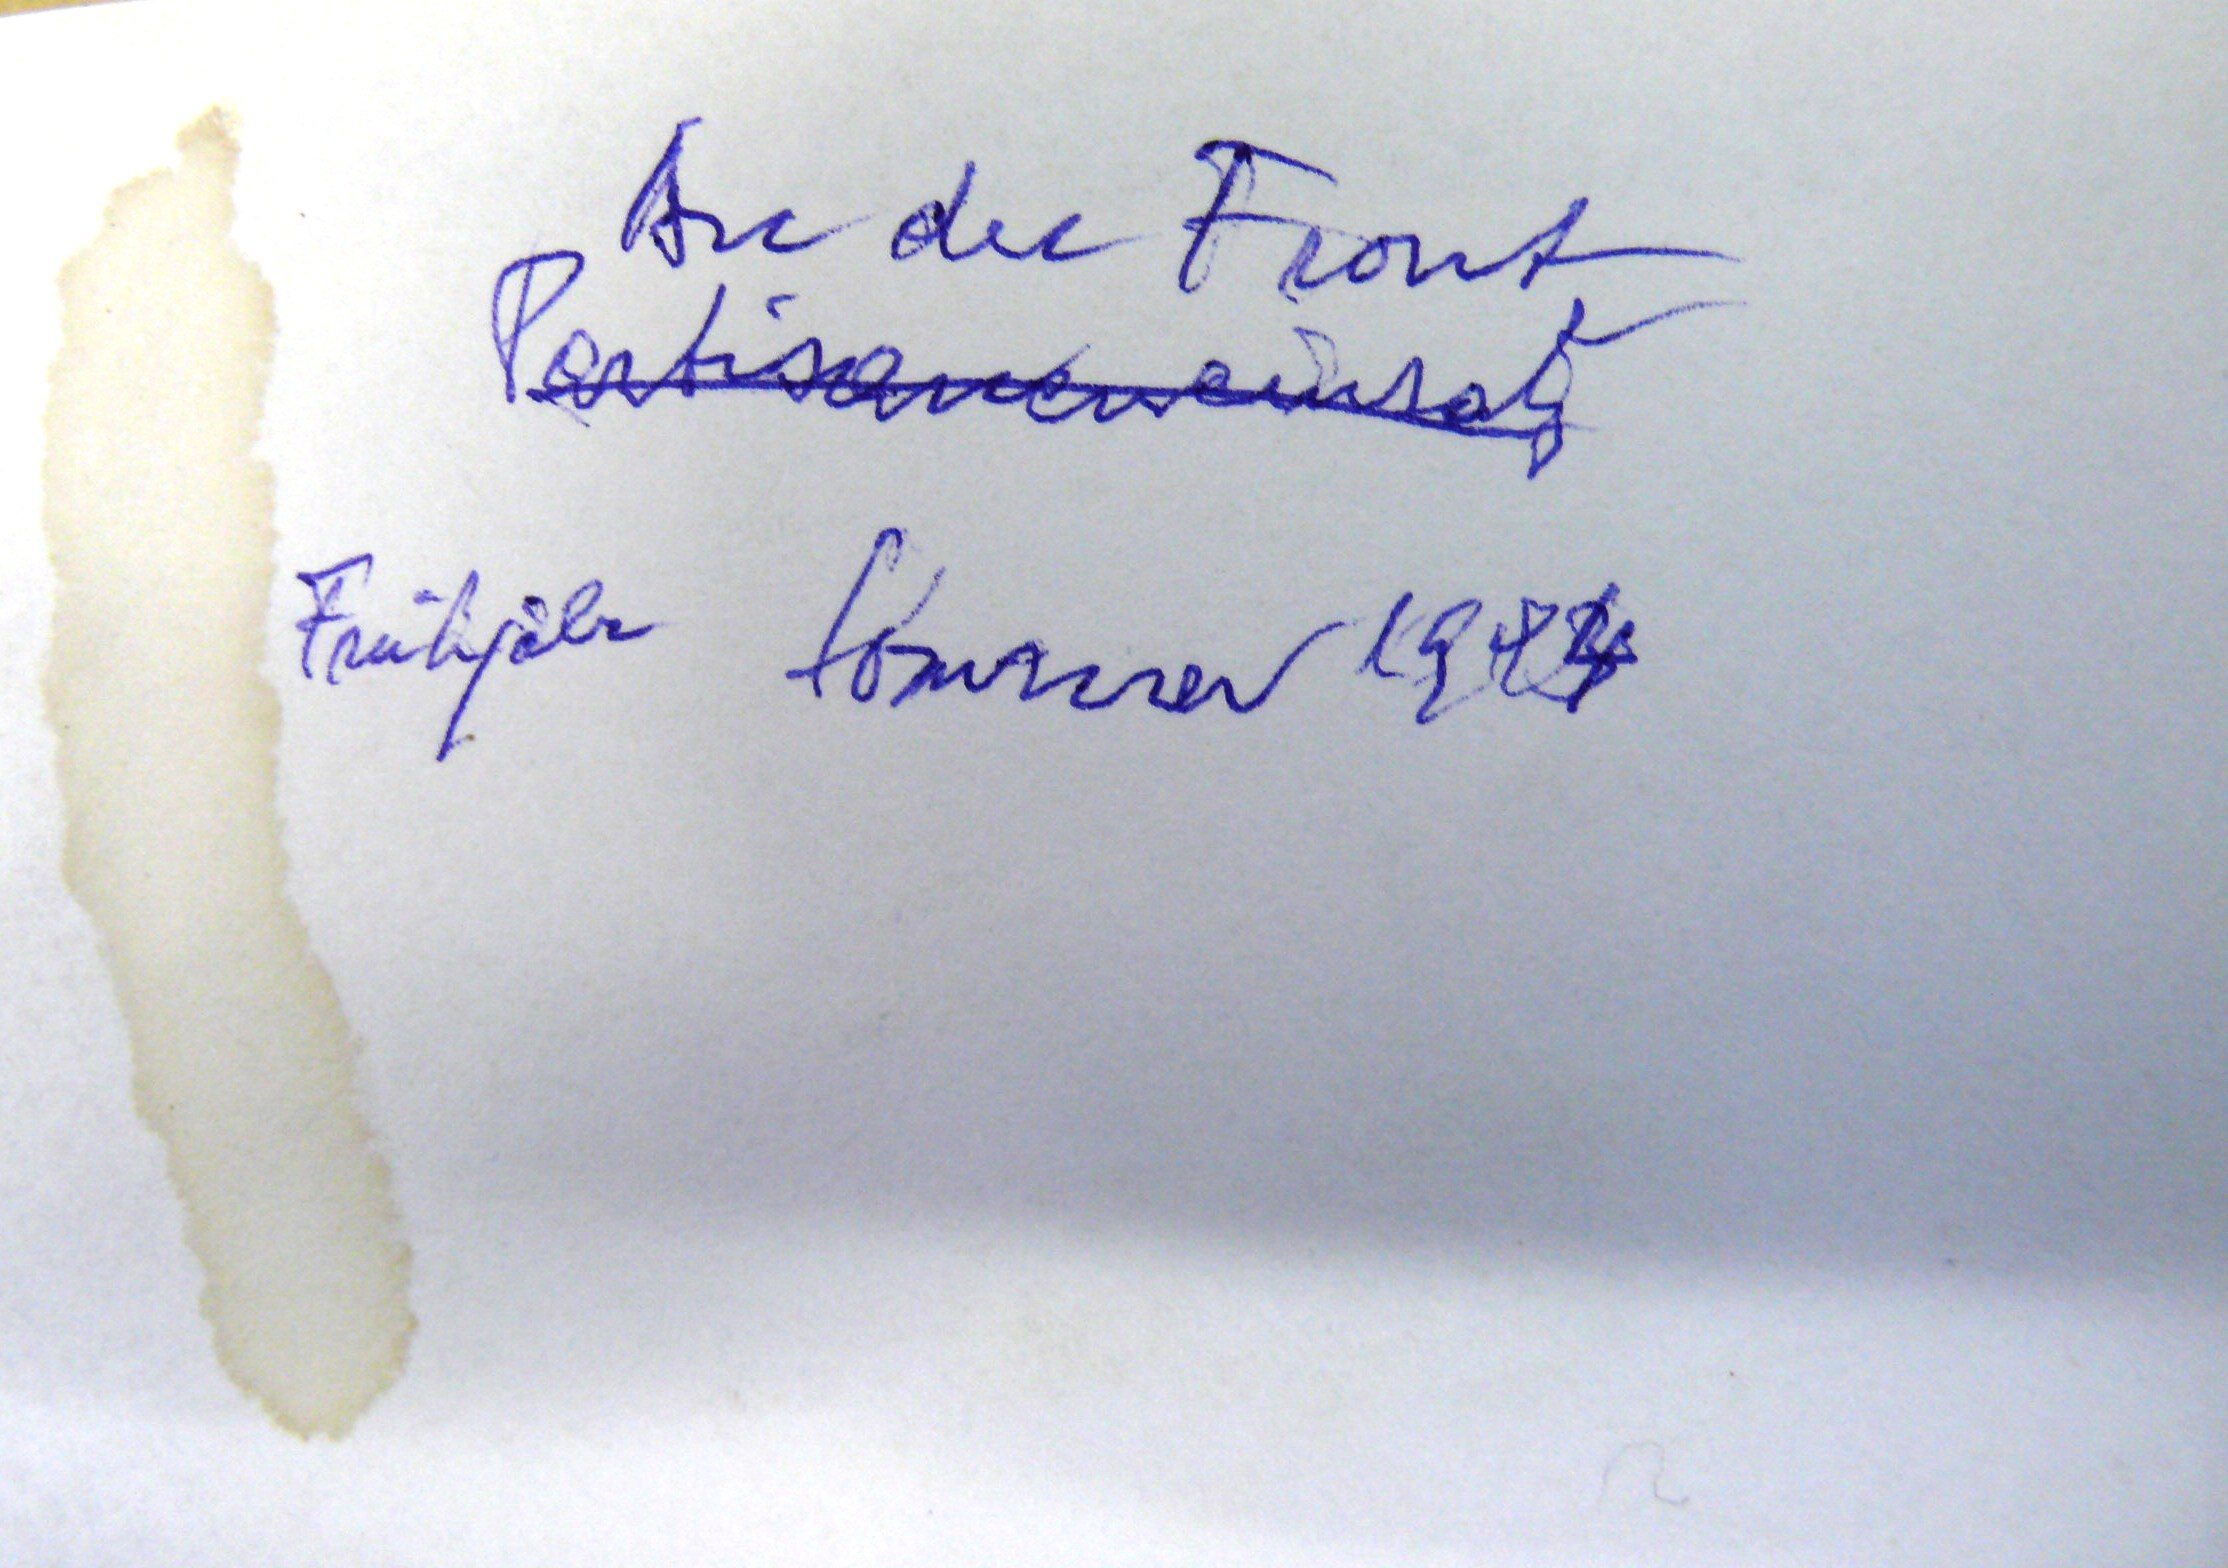 An der Front
Partisaneneinsatz
Frühjahr Sommer 194